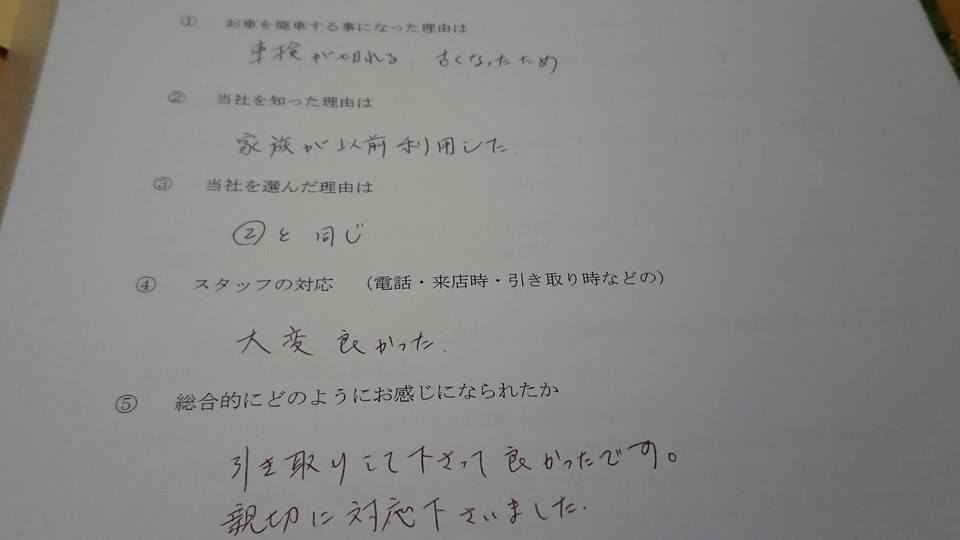 ① お車を廃車する事になった理由は
車検が切れる. 古くなったため
② 当社を知った理由は
家族が以前利用した.
③ 当社を選んだ理由は
②と同じ
④ スタッフの対応 (電話・来店時・引き取り時などの)
大変良かった.
⑤ 総合的にどのようにお感じになられたか
引き取りして下さって良かったです。
親切に対応下さいました.